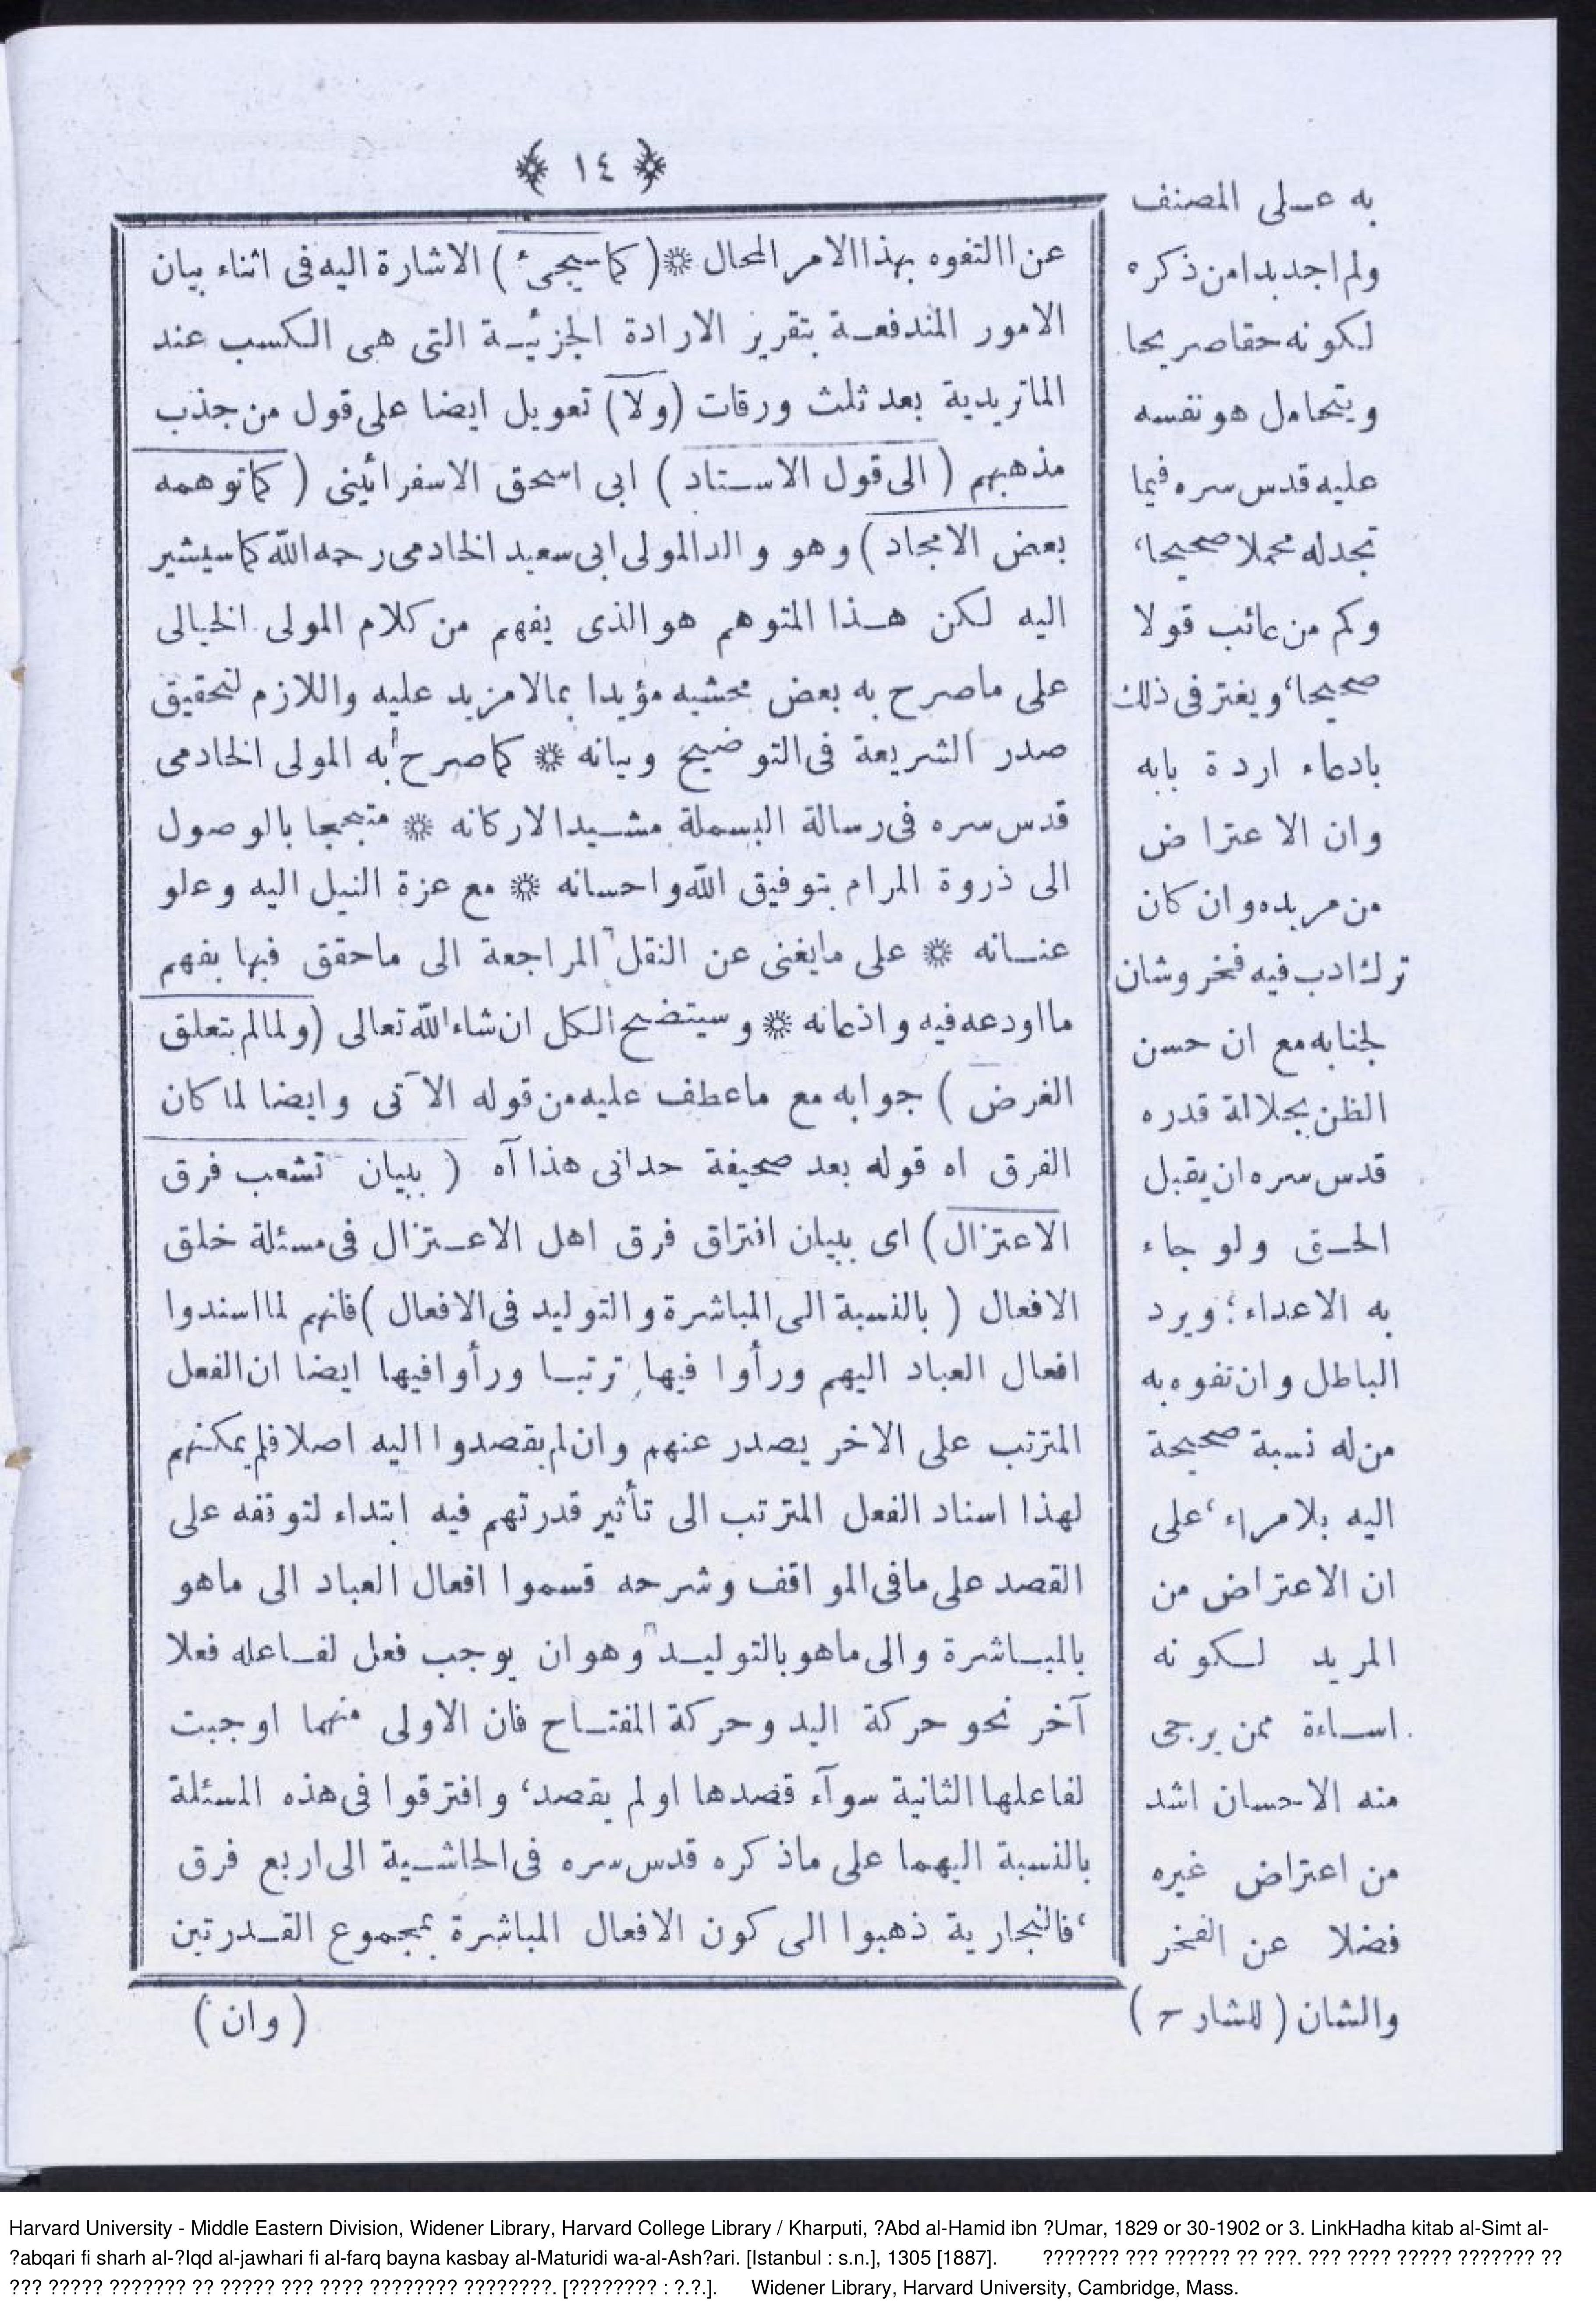 ﴿ ١٤ ﴾
عن االتفوه بهذا الامر المحال * ( كما سيجىء ) الاشارة اليه فى اثناء بيان
الامور المندفعة بتقرير الارادة الجزئية التى هى الكسب عند
الماتريدية بعد ثلث ورقات (ولا) تعويل ايضا على قول من جذب
مذهبهم ( الى قول الاستاد ) ابى اسحق الاسفرائينى ( كما توهمه
بعض الامجاد ) وهو والد المولى ابى سعيد الخادمى رحمه الله كما سيشير
اليه لكن هذا المتوهم هو الذى يفهم من كلام المولى الخيالى
على ما صرح به بعض محشيه مؤيدا بمالا مزيد عليه واللازم لتحقيق
صدر الشريعة فى التوضيح وبيانه * كما صرح به المولى الخادمى
قدس سره فى رسالة البسملة مشيدا لاركانه * متبجحا بالوصول
الى ذروة المرام بتوفيق الله واحسانه * مع عزة النيل اليه وعلو
عنسانه * على ما يغنى عن النقل المراجعة الى ما حقق فيها بفهم
ما اودعه فيه واذعانه * وسيتضح الكل ان شاء الله تعالى (ولما لم يتعلق
الغرض ) جوابه مع ما عطف عليه من قوله الآتى وايضا لما كان
الفرق اه قوله بعد صحيفة حدانى هذا آه ( ببيان تشعب فرق
الاعتزال ) اى ببيان افتراق فرق اهل الاعتزال فى مسئلة خلق
الافعال ( بالنسبة الى المباشرة والتوليد فى الافعال ) فانهم لما اسندوا
افعال العباد اليهم ورأوا فيها ترتبا ورأوا فيها ايضا ان الفعل
المترتب على الاخر يصدر عنهم وان لم يقصدوا اليه اصلا فلم يمكنهم
لهذا اسناد الفعل المترتب الى تأثير قدرتهم فيه ابتداء لتوقفه على
القصد على ما فى المواقف وشرحه قسموا افعال العباد الى ما هو
بالمباشرة والى ما هو بالتوليد وهو ان يوجب فعل لفاعله فعلا
آخر نحو حركة اليد وحركة المفتاح فان الاولى منهما اوجبت
لفاعلها الثانية سوآء قصدها او لم يقصد، وافترقوا فى هذه المسئلة
بالنسبة اليهما على ما ذكره قدس سره فى الحاشية الى اربع فرق
، فالنجارية ذهبوا الى كون الافعال المباشرة بمجموع القدرتين
( وان )
به على المصنف
ولم اجد بدا من ذكره
لكونه حقا صريحا
ويتحامل هو نفسه
عليه قدس سره فيما
تجد له محملا صحيحا،
وكم من عائب قولا
صحيحا، ويغتر فى ذلك
بادعاء اردة بابه
وان الاعتراض
من مريده وان كان
ترك ادب فيه فخر وشان
لجنابه مع ان حسن
الظن بجلالة قدره
قدس سره ان يقبل
الحق ولو جاء
به الاعداء؛ ويرد
الباطل وان تفوه به
من له نسبة صحيحة
اليه بلا مراء، على
ان الاعتراض من
المريد لكونه
اساءة ممن يرجى
منه الاحسان اشد
من اعتراض غيره
فضلا عن الفخر
والشان ( للشارح )
Harvard University - Middle Eastern Division, Widener Library, Harvard College Library / Kharputi, ?Abd al-Hamid ibn ?Umar, 1829 or 30-1902 or 3. LinkHadha kitab al-Simt al-
?abqari fi sharh al-?Iqd al-jawhari fi al-farq bayna kasbay al-Maturidi wa-al-Ash?ari. [Istanbul : s.n.], 1305 [1887]. ??????? ??? ?????? ?? ???. ??? ???? ????? ??????? ??
??? ????? ??????? ?? ????? ??? ???? ???????? ????????. [???????? : ?.?.]. Widener Library, Harvard University, Cambridge, Mass.